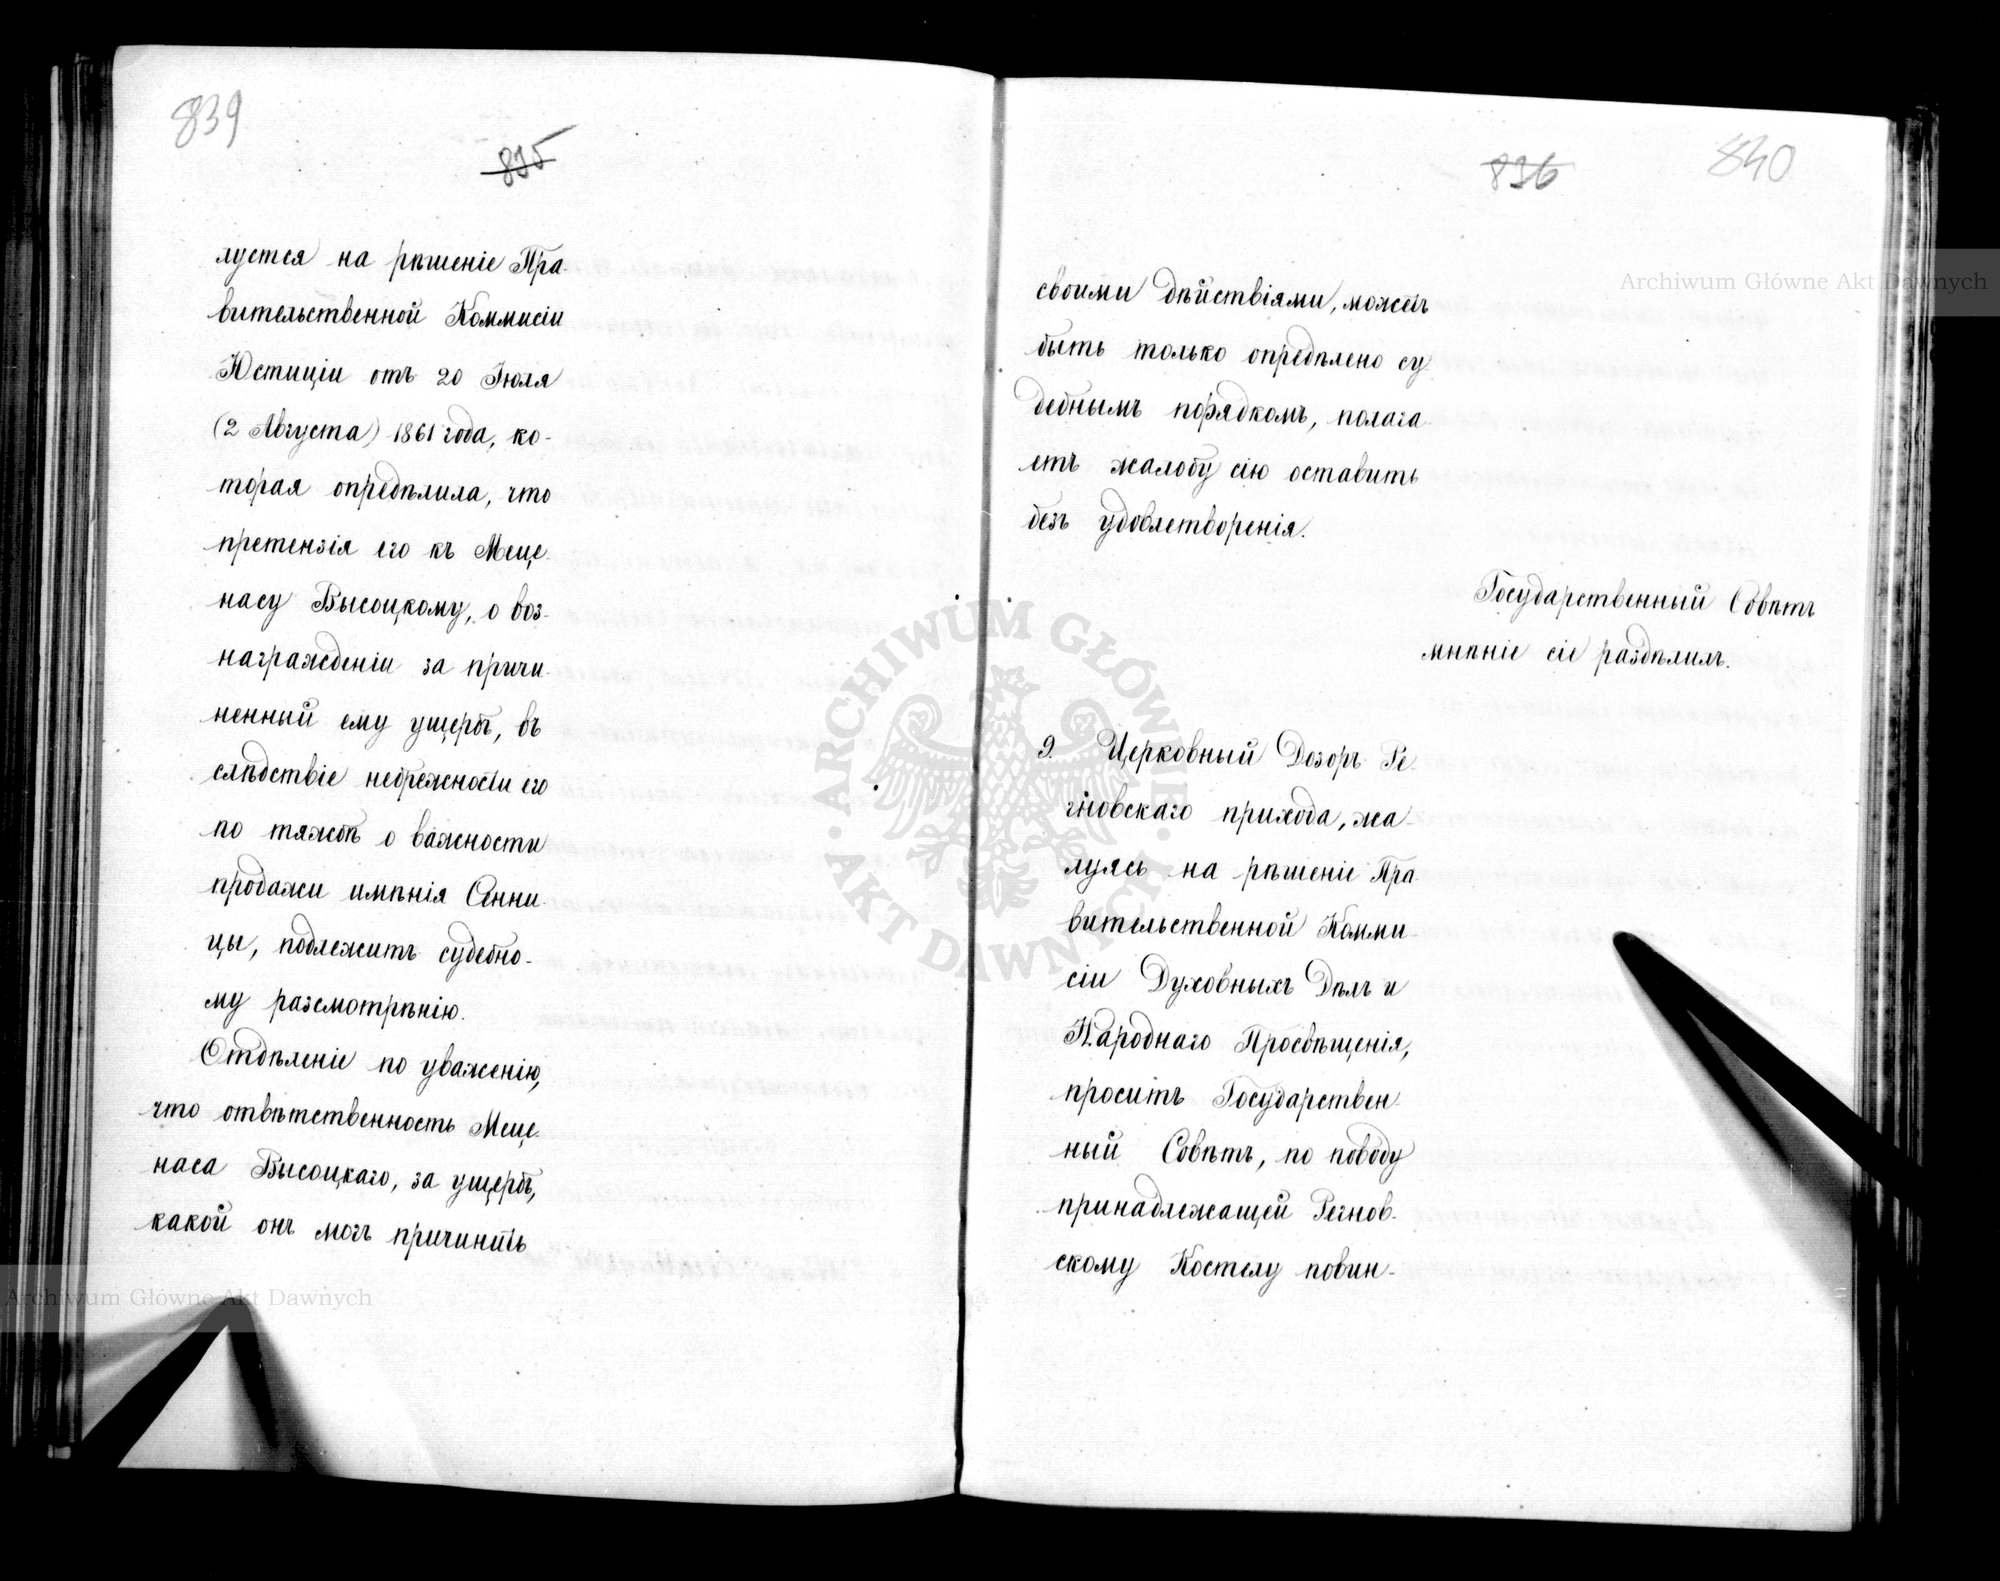 839
835
луется на рѣшеніе Пра-
вительственной Коммисіи
Юстиціи отъ 20 Іюля
(2 Августа) 1861 года, ко-
торая опредѣлила, что
претензія его къ Меце-
насу Высоцкому, о воз-
награжденіи за причи-
ненный ему ущербъ, въ
слѣдствіе небрежности его
по тяжбѣ о важности
продажи имѣнія Сенни-
цы, подлежитъ судебно-
му разсмотрѣнію.
Отдѣленіе по уваженію,
что отвѣтственность Меце-
наса Высоцкаго, за ущербъ,
какой онъ могъ причинить
840
836
своими дѣйствіями, можетъ
быть только опредѣлено су-
дебнымъ порядкомъ, полага-
етъ жалобу сію оставить
безъ удовлетворенія.
Государственный Совѣтъ
мнѣніе сіе раздѣлилъ.
9. Церковный Дозоръ Ре-
гновскаго прихода, жа-
луясь на рѣшеніе Пра-
вительственной Комми-
сіи Духовныхъ Дѣлъ и
Народнаго Просвѣщенія,
проситъ Государствен-
ный Совѣтъ, по поводу
принадлежащей Регнов-
скому Костелу повин-
Archiwum Główne Akt Dawnych
Archiwum Główne Akt Dawnych
ARCHIWUM GŁÓWNE AKT DAWNYCH